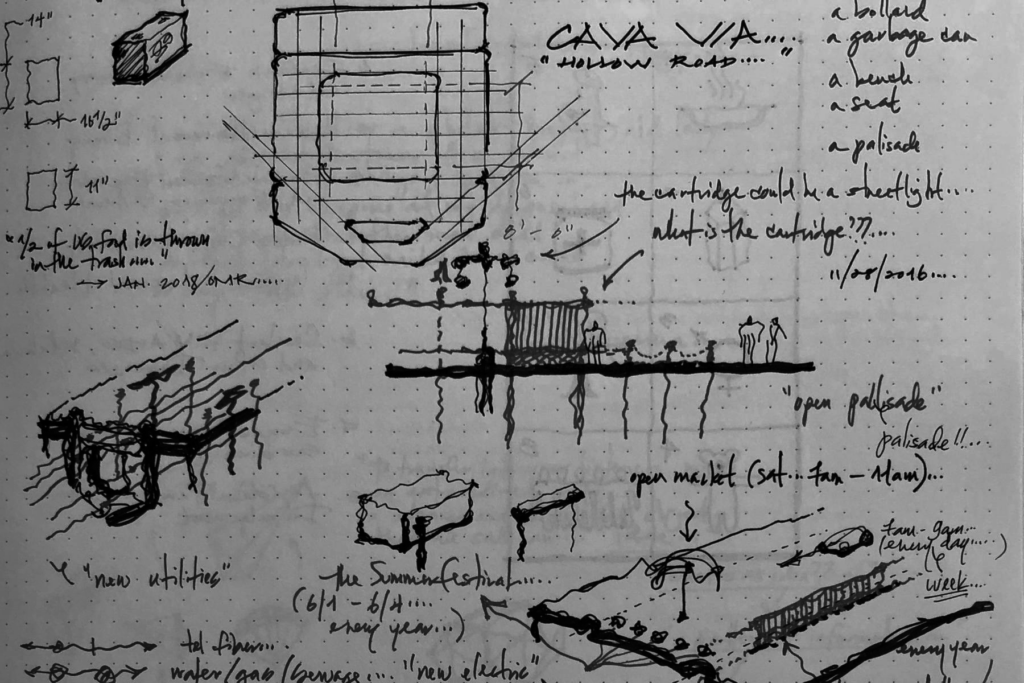 14"
16 1/2"
11"
"1/2 of US food is thrown
in the trash....."
→ JAN. 2018/OMR.....
CAVA VIA....
"HOLLOW ROAD...."
a bollard
a garbage can
a bench
a seat
a palisade
the cartridge could be a streetlight....
what is the cartridge???....
11/28/2016....
8'-0"
"open pallisade"
palisade!!...
open market (sat... 7am - 11am)...
7am - 9am...
(every day.....)
week....
every year
"new utilities"
the Summerfestival.....
(6/1 - 6/4....
every year...)
tel fiber....
water/gas/sewage....
"new electric"